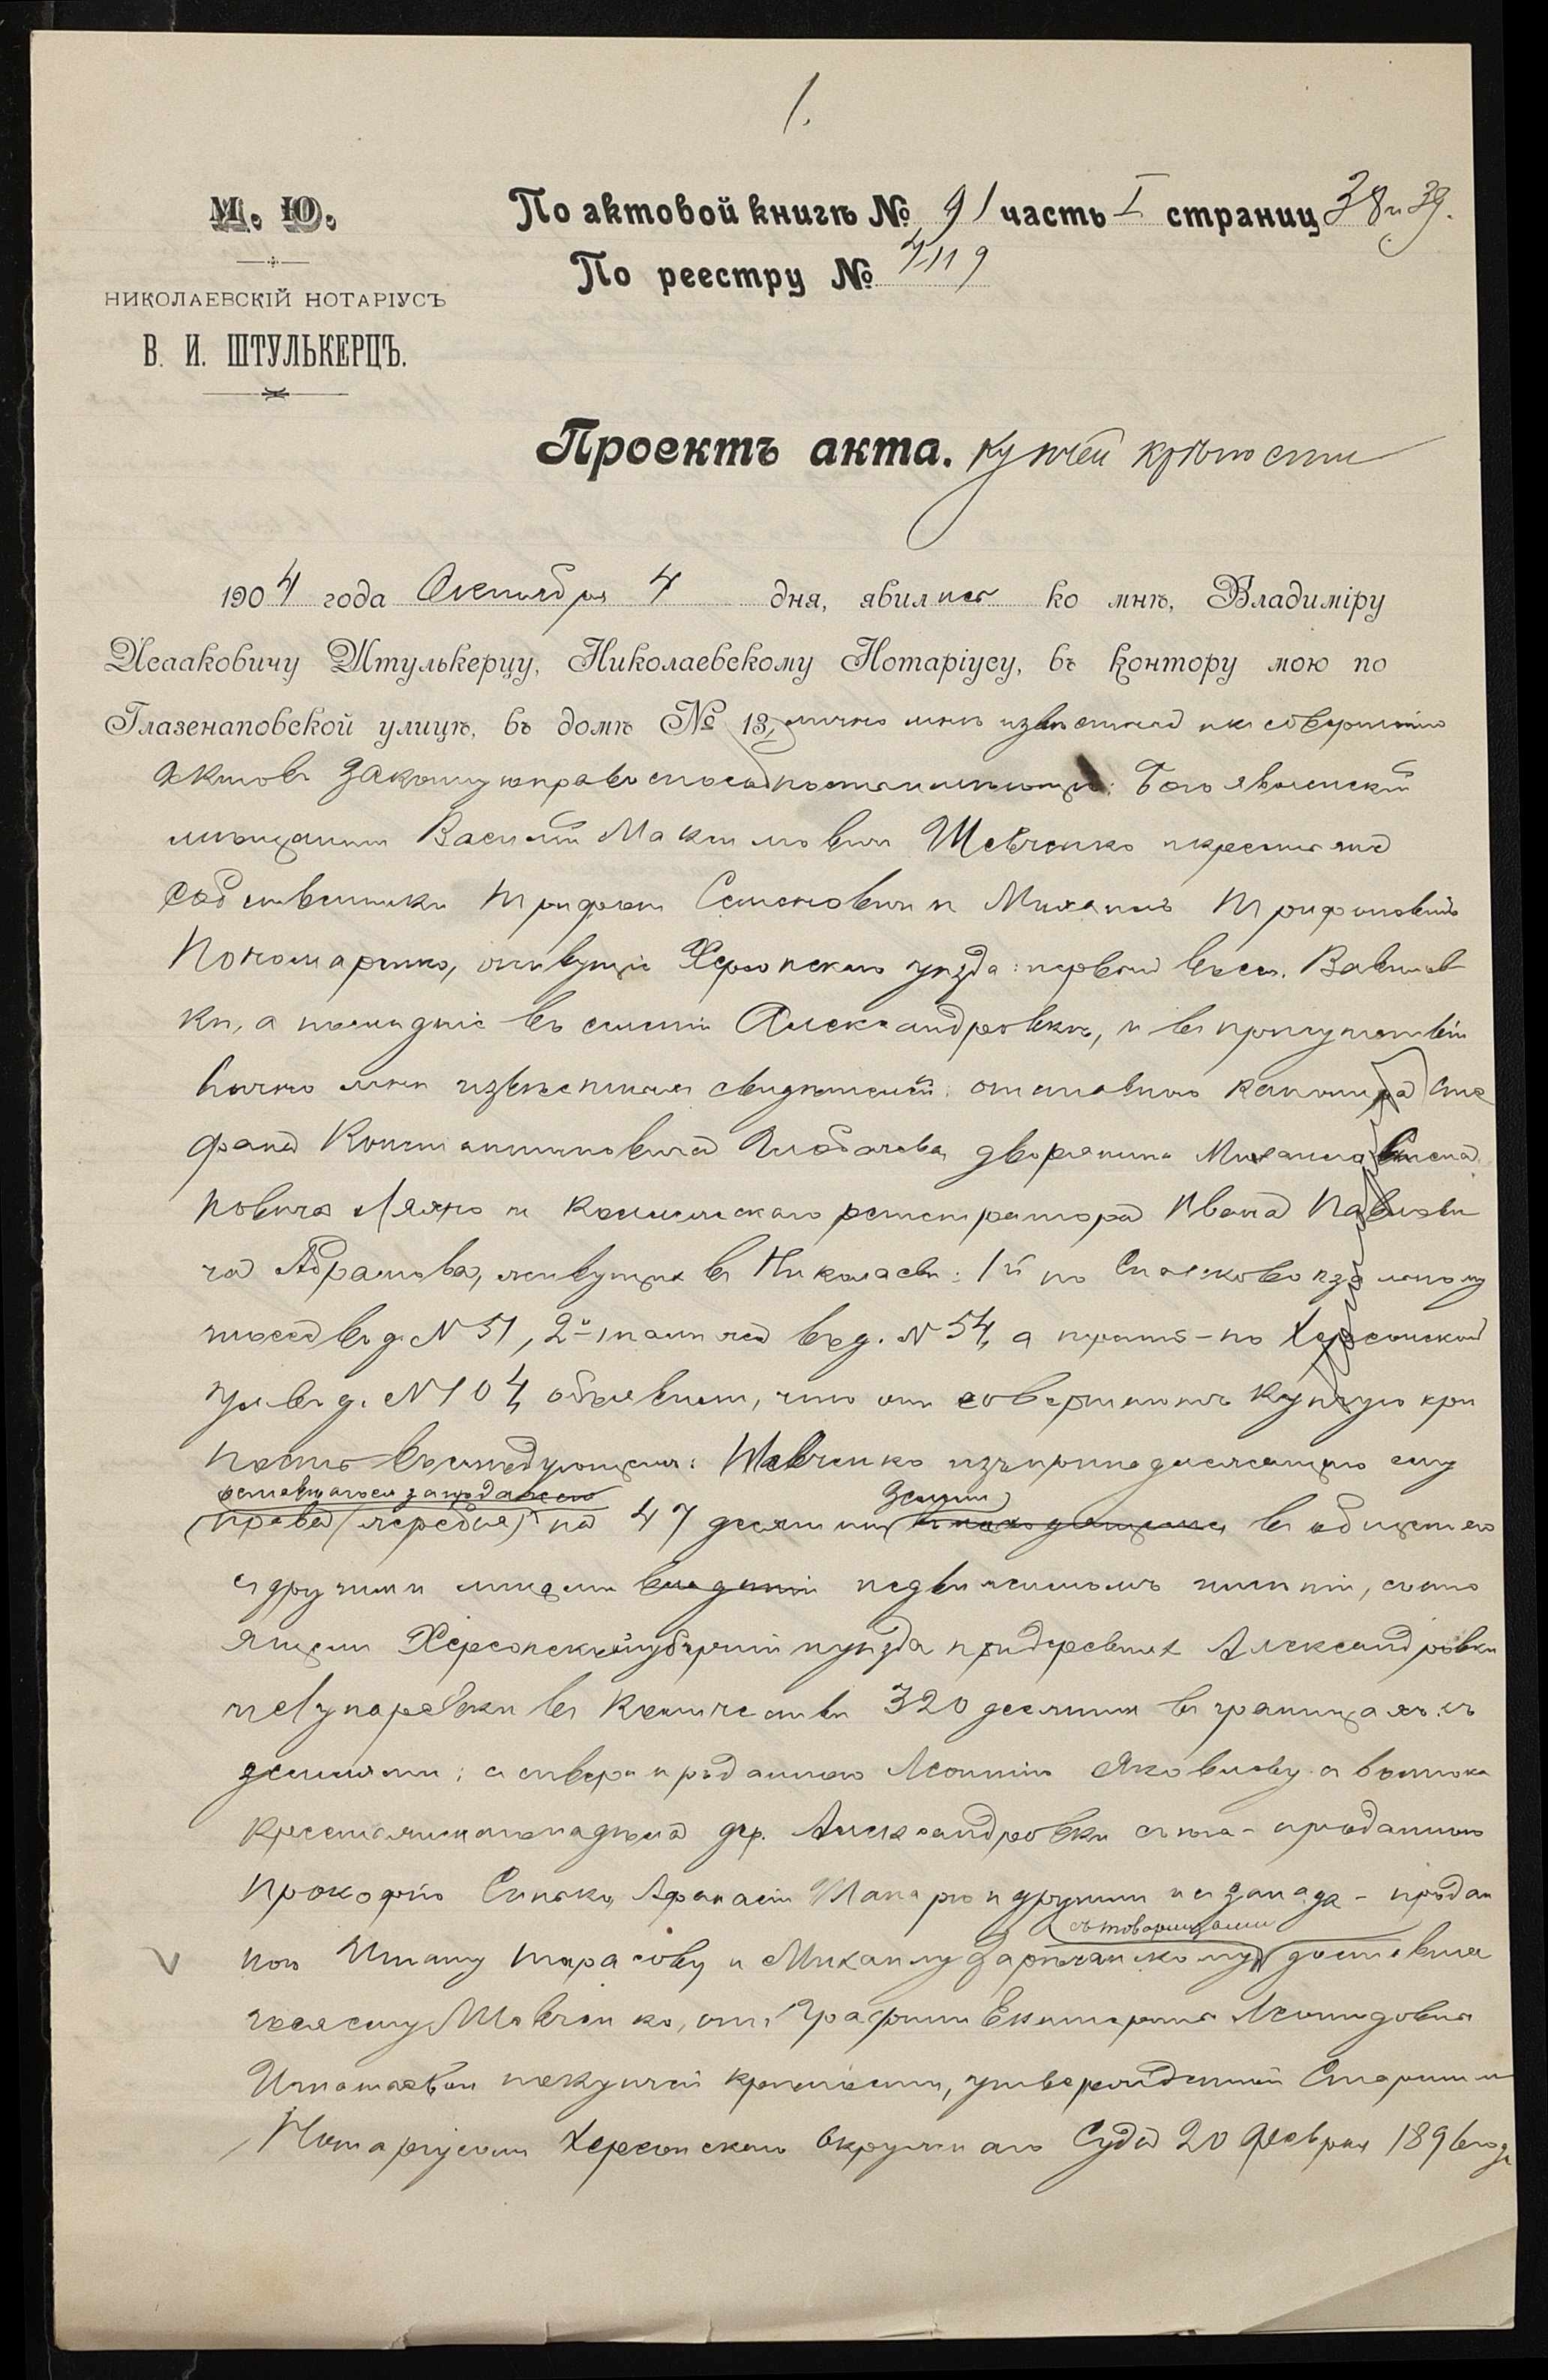 1.
М. Ю.
НИКОЛАЕВСКІЙ НОТАРІУСЪ
В. И. ШТУЛЬКЕРЦЪ.
По актовой книгѣ № 91 часть I страниц 38 и 39.
По реестру № 4119
Проектъ акта. купчей крѣпости
1904 года Октября 4 дня, явились ко мнѣ, Владиміру
Исааковичу Штулькерцу, Николаевскому Нотаріусу, въ контору мою по
Глазенаповской улицѣ, въ домѣ № 13, лично мнѣ извѣстные и къ совершенію
актовъ законную правоспособность имѣющіе: Богоявленскій
мѣщанинъ Василій Максимовичъ Шевченко и крестьяне
собственники Трифонъ Семеновичъ и Михаилъ Трифоновичъ
Пономаренко, живущіе Херсонскаго уѣзда: первый въ с. Вавилов
кѣ, а послѣдніе въ селеніи Александровкѣ, и въ присутствіи
лично мнѣ извѣстныхъ свидѣтелей: отставного капитана Сте
фана Константиновича Глобачева, дворянина Михаила
новича и Коллежскаго регистратора Ивана Павлови
ча Абрамова, живущихъ въ Николаевѣ: 1й по Спасковокзальному
шоссе въ д. № 51, 2й тамъ же въ д. № 54, а третій - по Херсонской
ул. въ д. № 104, объявили, что они совершаютъ купчую крѣ
пость въ слѣдующемъ: Шевченко изъ принадлежащаго ему
оставшагося за продажею земли
права (жеребья) на 47 десятинъ находящихся въ общемъ
съ другими лицами владѣніи недвижимомъ имѣніи, состо
ящемъ Херсонской губерніи и уѣзда при деревняхъ Александровкѣ
и Лупаревкѣ въ количествѣ 320 десятинъ въ границахъ съ
землями: съ сѣвера проданною Леонтію Яковлеву съ востока
крестьянскаго надѣла дер. Александровки съ юга - проданною
Прокофію Синько, Афанасію и другимъ и съ запада - продан
съ товарищами
ною Игнату Тарасову и Михаилу Зарѣчанскому доставша
гося ему Шевченко, отъ Графини Екатерины Леонидовны
Игнатьевой по купчей крѣпости, утвержденной Старшимъ
Нотаріусомъ Херсонскаго Окружнаго Суда 20 Февраля 1896 года